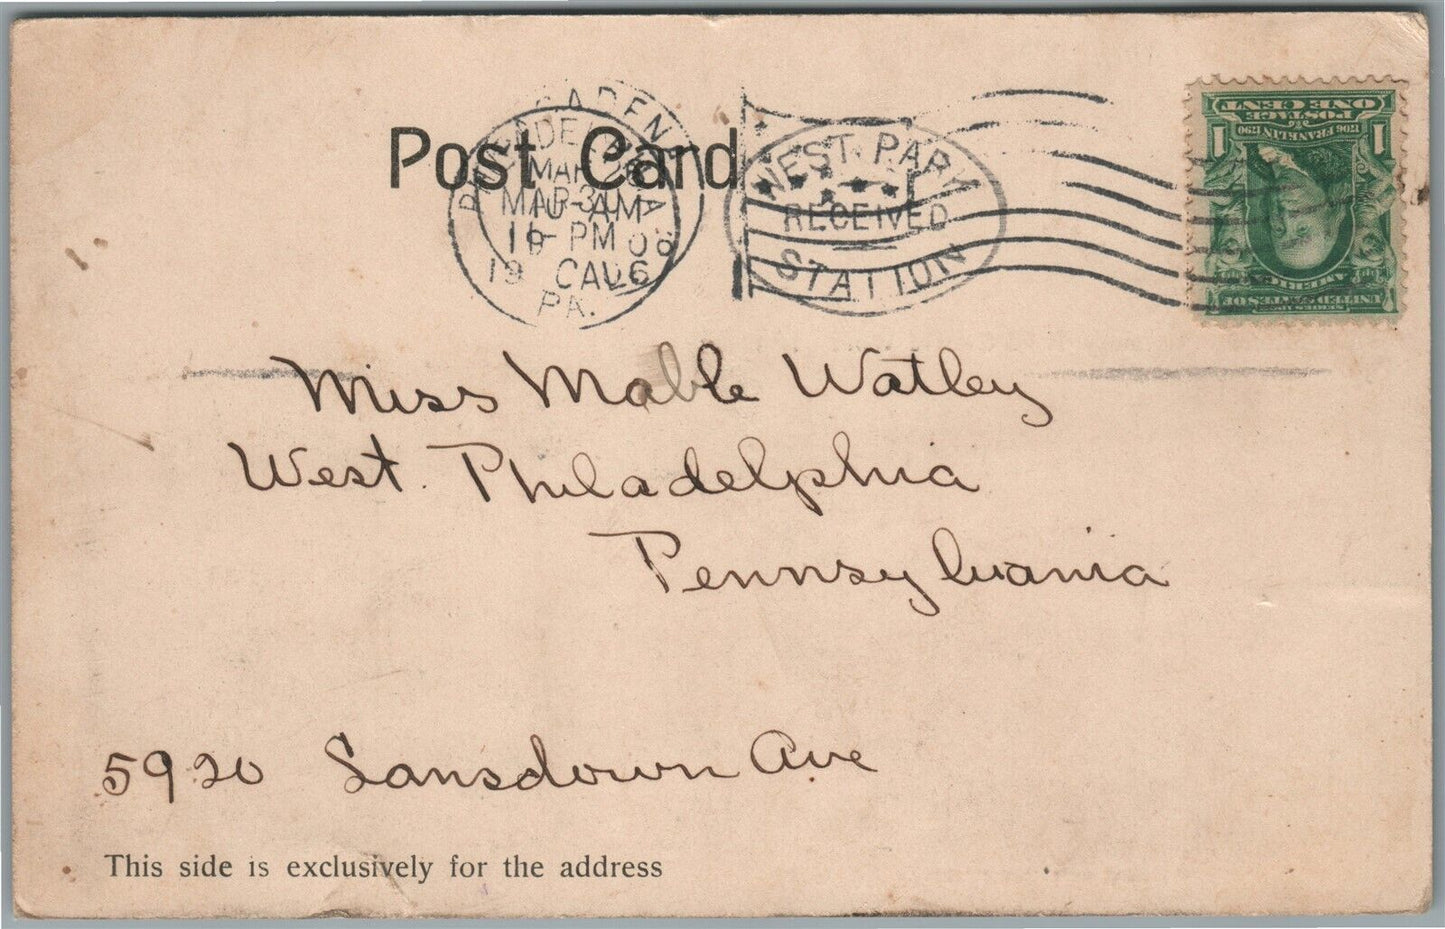 Post Card
PHILADELPHIA
PASADENA
MAR 26
MAR 30
10-AM
1-PM
1906
CAL
PA.
WEST PARK
RECEIVED
STATION
ONE CENT
POSTAGE
1706 FRANKLIN 1790
1 1
UNITED STATES OF AMERICA
Miss Mable Watley
West. Philadelphia
Pennsylvania
5920 Lansdown Ave
This side is exclusively for the address